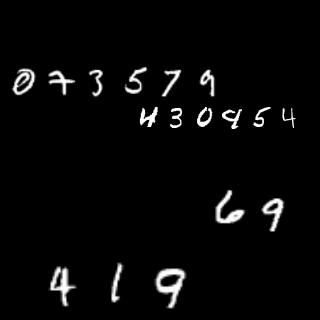 073579
430954
69
419